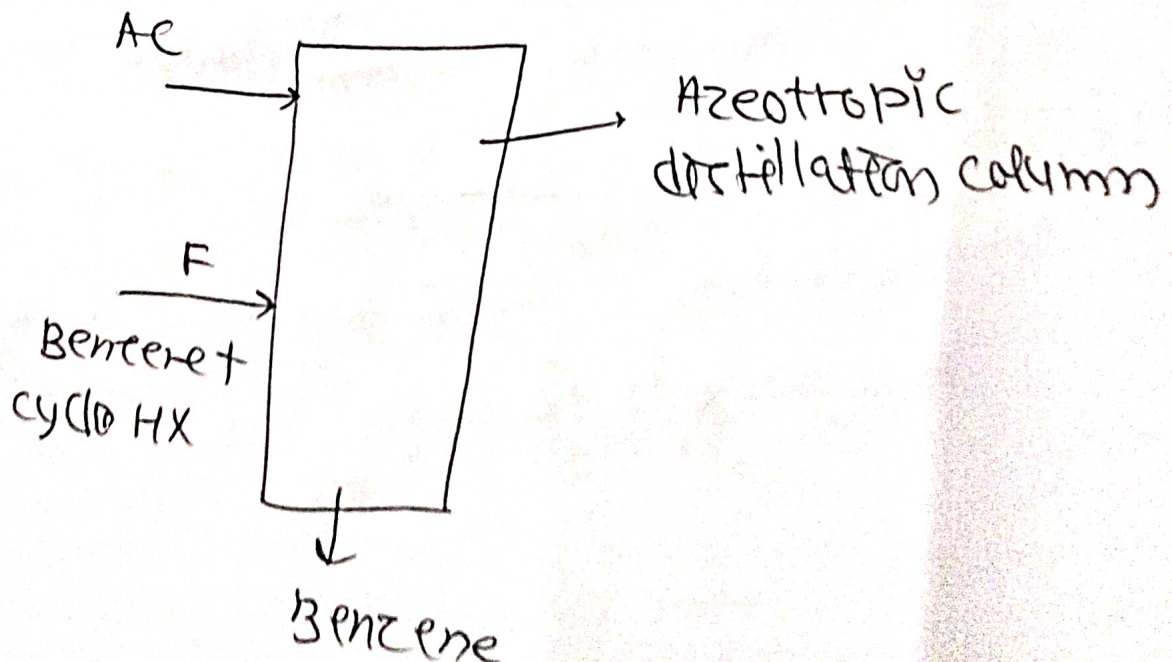 AC
Azeotropic
distillation column
F
Benzene +
cyclo HX
Benzene